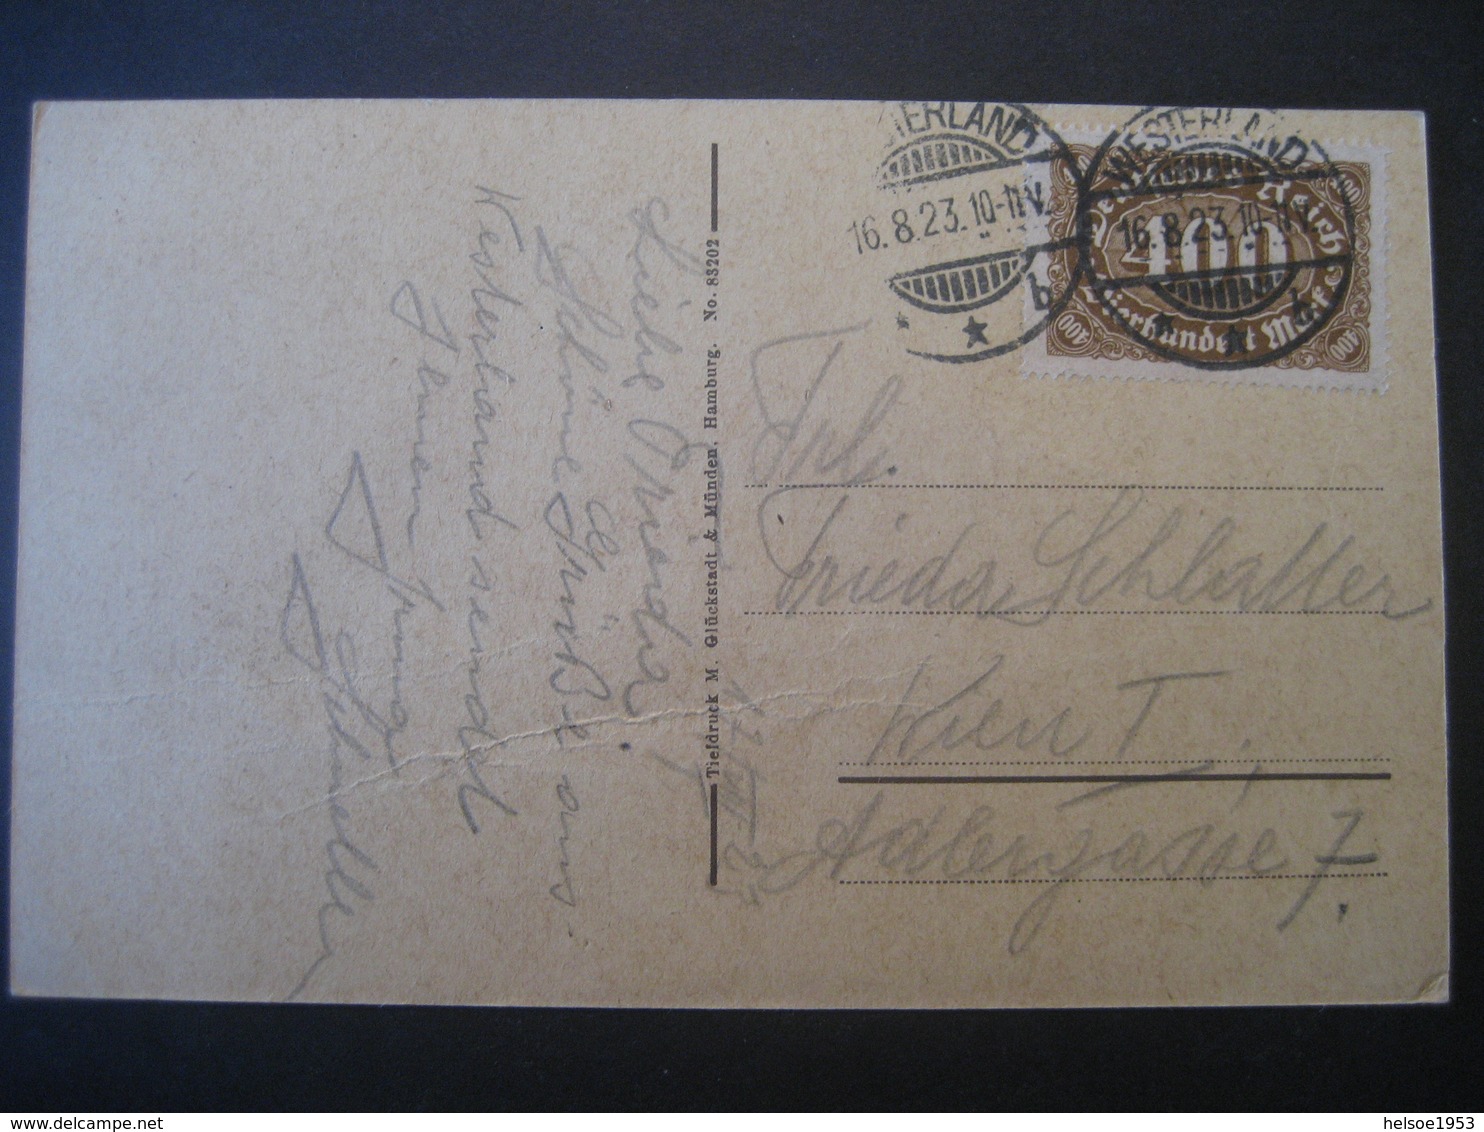 WESTERLAND
16.8.23.10-11V.
b
WESTERLAND
16.8.23.10-11V.
b
Deutsches Reich
400
Vierhundert Mark
400
400
400
Frl.
Frieda Schlatter
Wien I,
Adlergasse 7.
Tiefdruck M. Glückstadt & Münden, Hamburg. No. 83202
Liebe Frieda!
Schöne Grüße aus
Westerland sendet
Ihnen
Schneller
helsoe1953